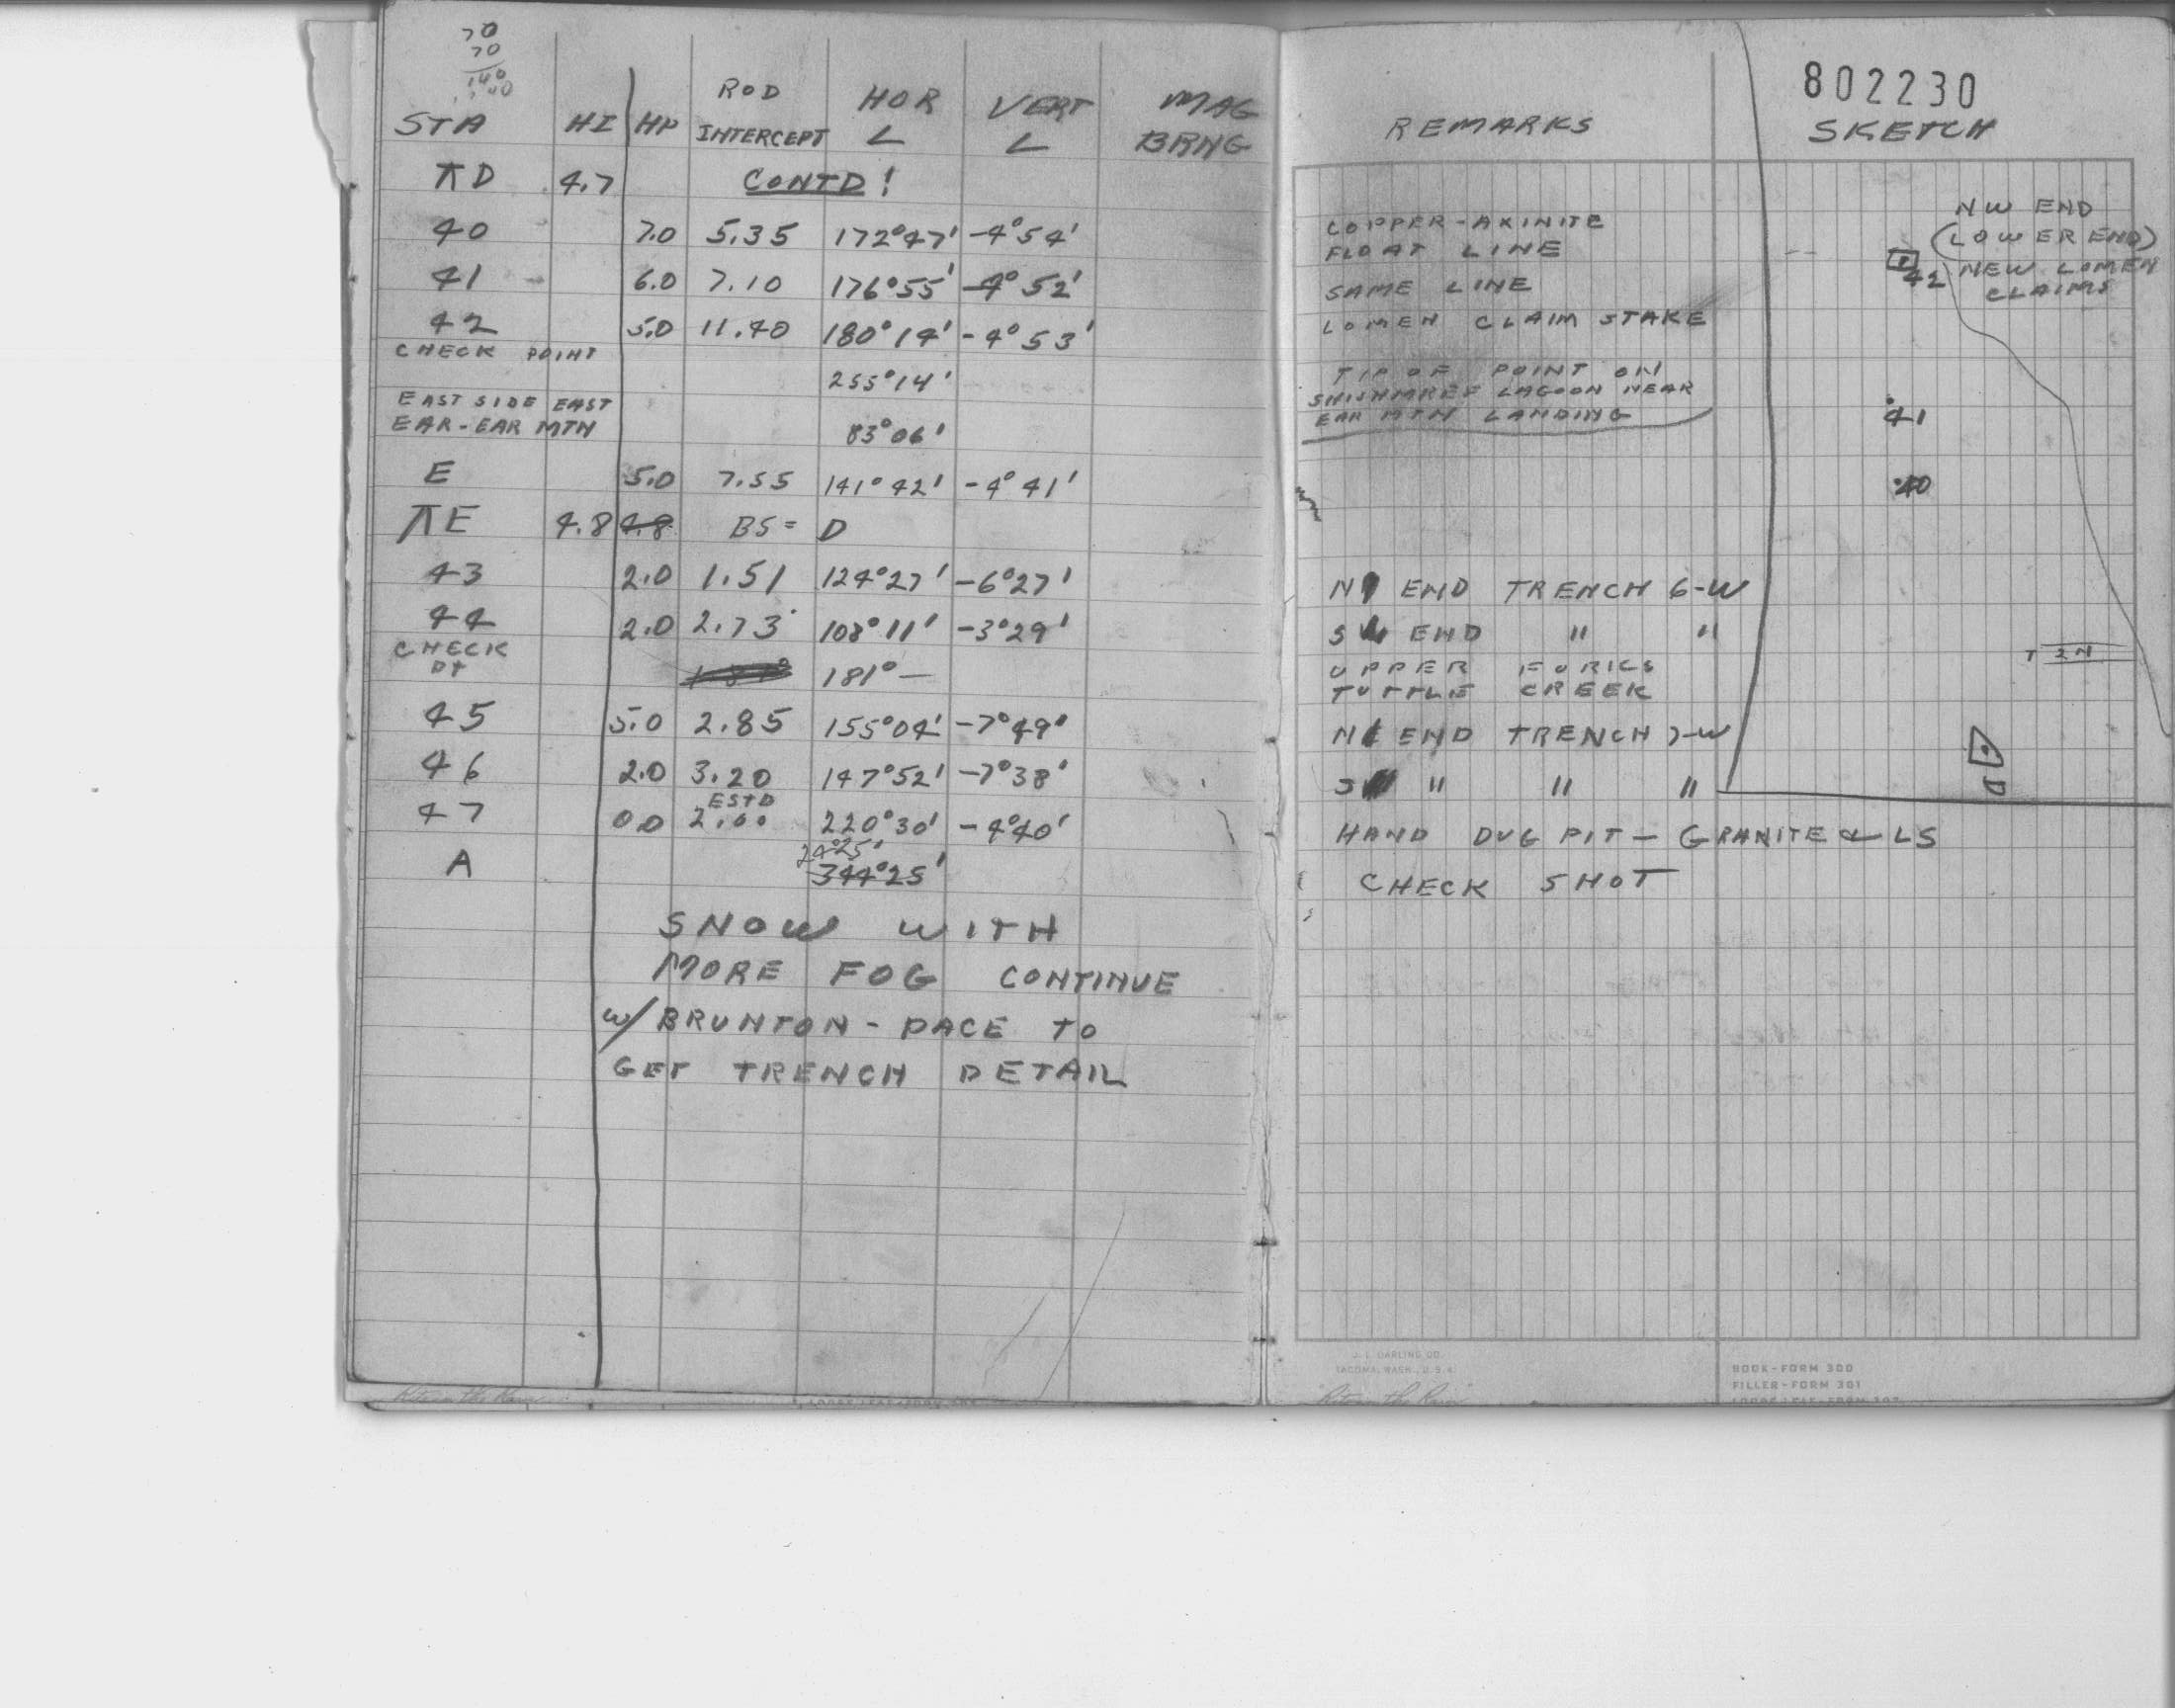 70
70
140
ROD HOR VERT MAG
STA HI HP INTERCEPT ∠ ∠ BRNG
⊼D 4.7 CONTD!
40 7.0 5.35 172°47' -4°54'
41 6.0 7.10 176°55' -4°52'
42 5.0 11.40 180°14' -4°53'
CHECK POINT
255°14'
EAST SIDE EAST
EAR-EAR MTN 83°06'
E 5.0 7.55 141°42' -4°41'
⊼E 4.8 4.8 BS = D
43 2.0 1.51 124°27' -6°27'
44 2.0 2.73 108°11' -3°29'
CHECK
PT 181° —
45 5.0 2.85 155°04' -7°49'
46 2.0 3.20 147°52' -7°38'
ESTD
47 0.0 2.60 220°30' -4°40'
24°25'
A 344°25'
SNOW WITH
MORE FOG CONTINUE
w/ BRUNTON - PACE TO
GET TRENCH DETAIL
Rite in the Rain
802230
REMARKS SKETCH
COPPER-AXINITE
FLOAT LINE
SAME LINE
LOMEN CLAIM STAKE
TIP OF POINT ON
SHISHMREF LAGOON NEAR
EAR MTN LANDING
N END TRENCH 6-W
S END " "
UPPER FORKS
TUTTLE CREEK
N END TRENCH 7-W
S " " "
HAND DUG PIT - GRANITE & LS
CHECK SHOT
NW END
(LOWER END)
NEW LOMEN
CLAIMS
42
41
40
T 2N
D
J. L. DARLING CO.
TACOMA, WASH., U.S.A.
Rite in the Rain
BOOK-FORM 300
FILLER-FORM 301